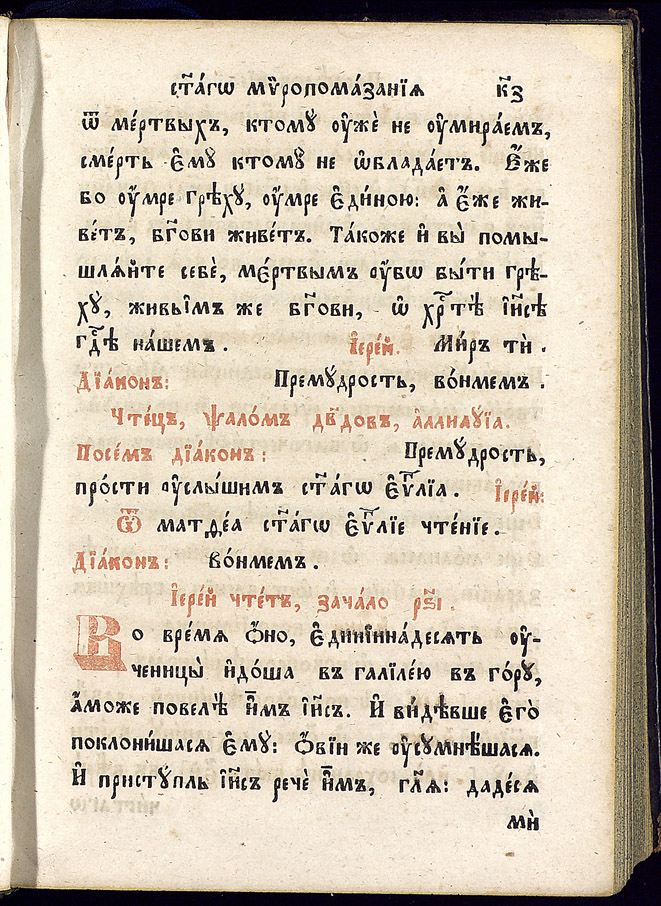 ст҃а́гѡ мѵ̈ропома́занїѧ к҃з
ѿ ме́ртвыхъ, ктомꙋ̀ ᲂу҆жѐ не ᲂу҆мира́емъ,
сме́рть є҆мꙋ̀ ктомꙋ̀ не ѡ҆блада́етъ. Є҆́же
бо ᲂу҆́мре грѣхꙋ̀, ᲂу҆́мре є҆ди́ною: а҆ є҆́же жи-
ве́тъ, бг҃ови живе́тъ. Та́коже и҆ вы̀ помы-
шлѧ́йте себѐ, ме́ртвымъ ᲂу҆́бѡ бы́ти грѣ-
хꙋ̀, живы̑мъ же бг҃ови, ѡ҆ хрⷭ҇тѣ̀ і҆и҃сѣ
гдⷭ҇ѣ на́шемъ. І҆ере́й. Ми́ръ тѝ.
Дїа́конъ: Премꙋ́дрость, во́нмемъ.
Чте́цъ, ѱало́мъ дв҃довъ, а҆ллилꙋ́їа.
Посе́мъ дїа́конъ: Премꙋ́дрость,
про́сти ᲂу҆слы́шимъ ст҃а́гѡ є҆ѵⷢ҇лїа. І҆ере́й:
Ѿ матѳе́а ст҃а́гѡ є҆ѵⷢ҇лїе чте́нїе.
Дїа́конъ: во́нмемъ.
І҆ере́й чте́тъ, зача́ло рѕ҃і.
Во вре́мѧ ѻ҆́но, є҆ди́нїина́десѧть ᲂу҆-
ченицы̀ и҆до́ша въ галїле́ю въ го́рꙋ,
а҆́може повелѣ̀ и҆̀мъ і҆и҃съ. И҆ ви́дѣвше є҆го̀
поклони́шасѧ є҆мꙋ̀: ѻ҆́вїи же ᲂу҆сꙋмнѣ́шасѧ.
И҆ пристꙋ́пль і҆и҃съ речѐ и҆̀мъ, гл҃ѧ: даде́сѧ
мѝ